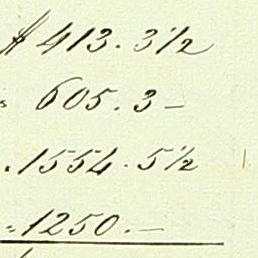 ƒ 413.3½
" 605.3–
" 1554.5½
" 1250.–